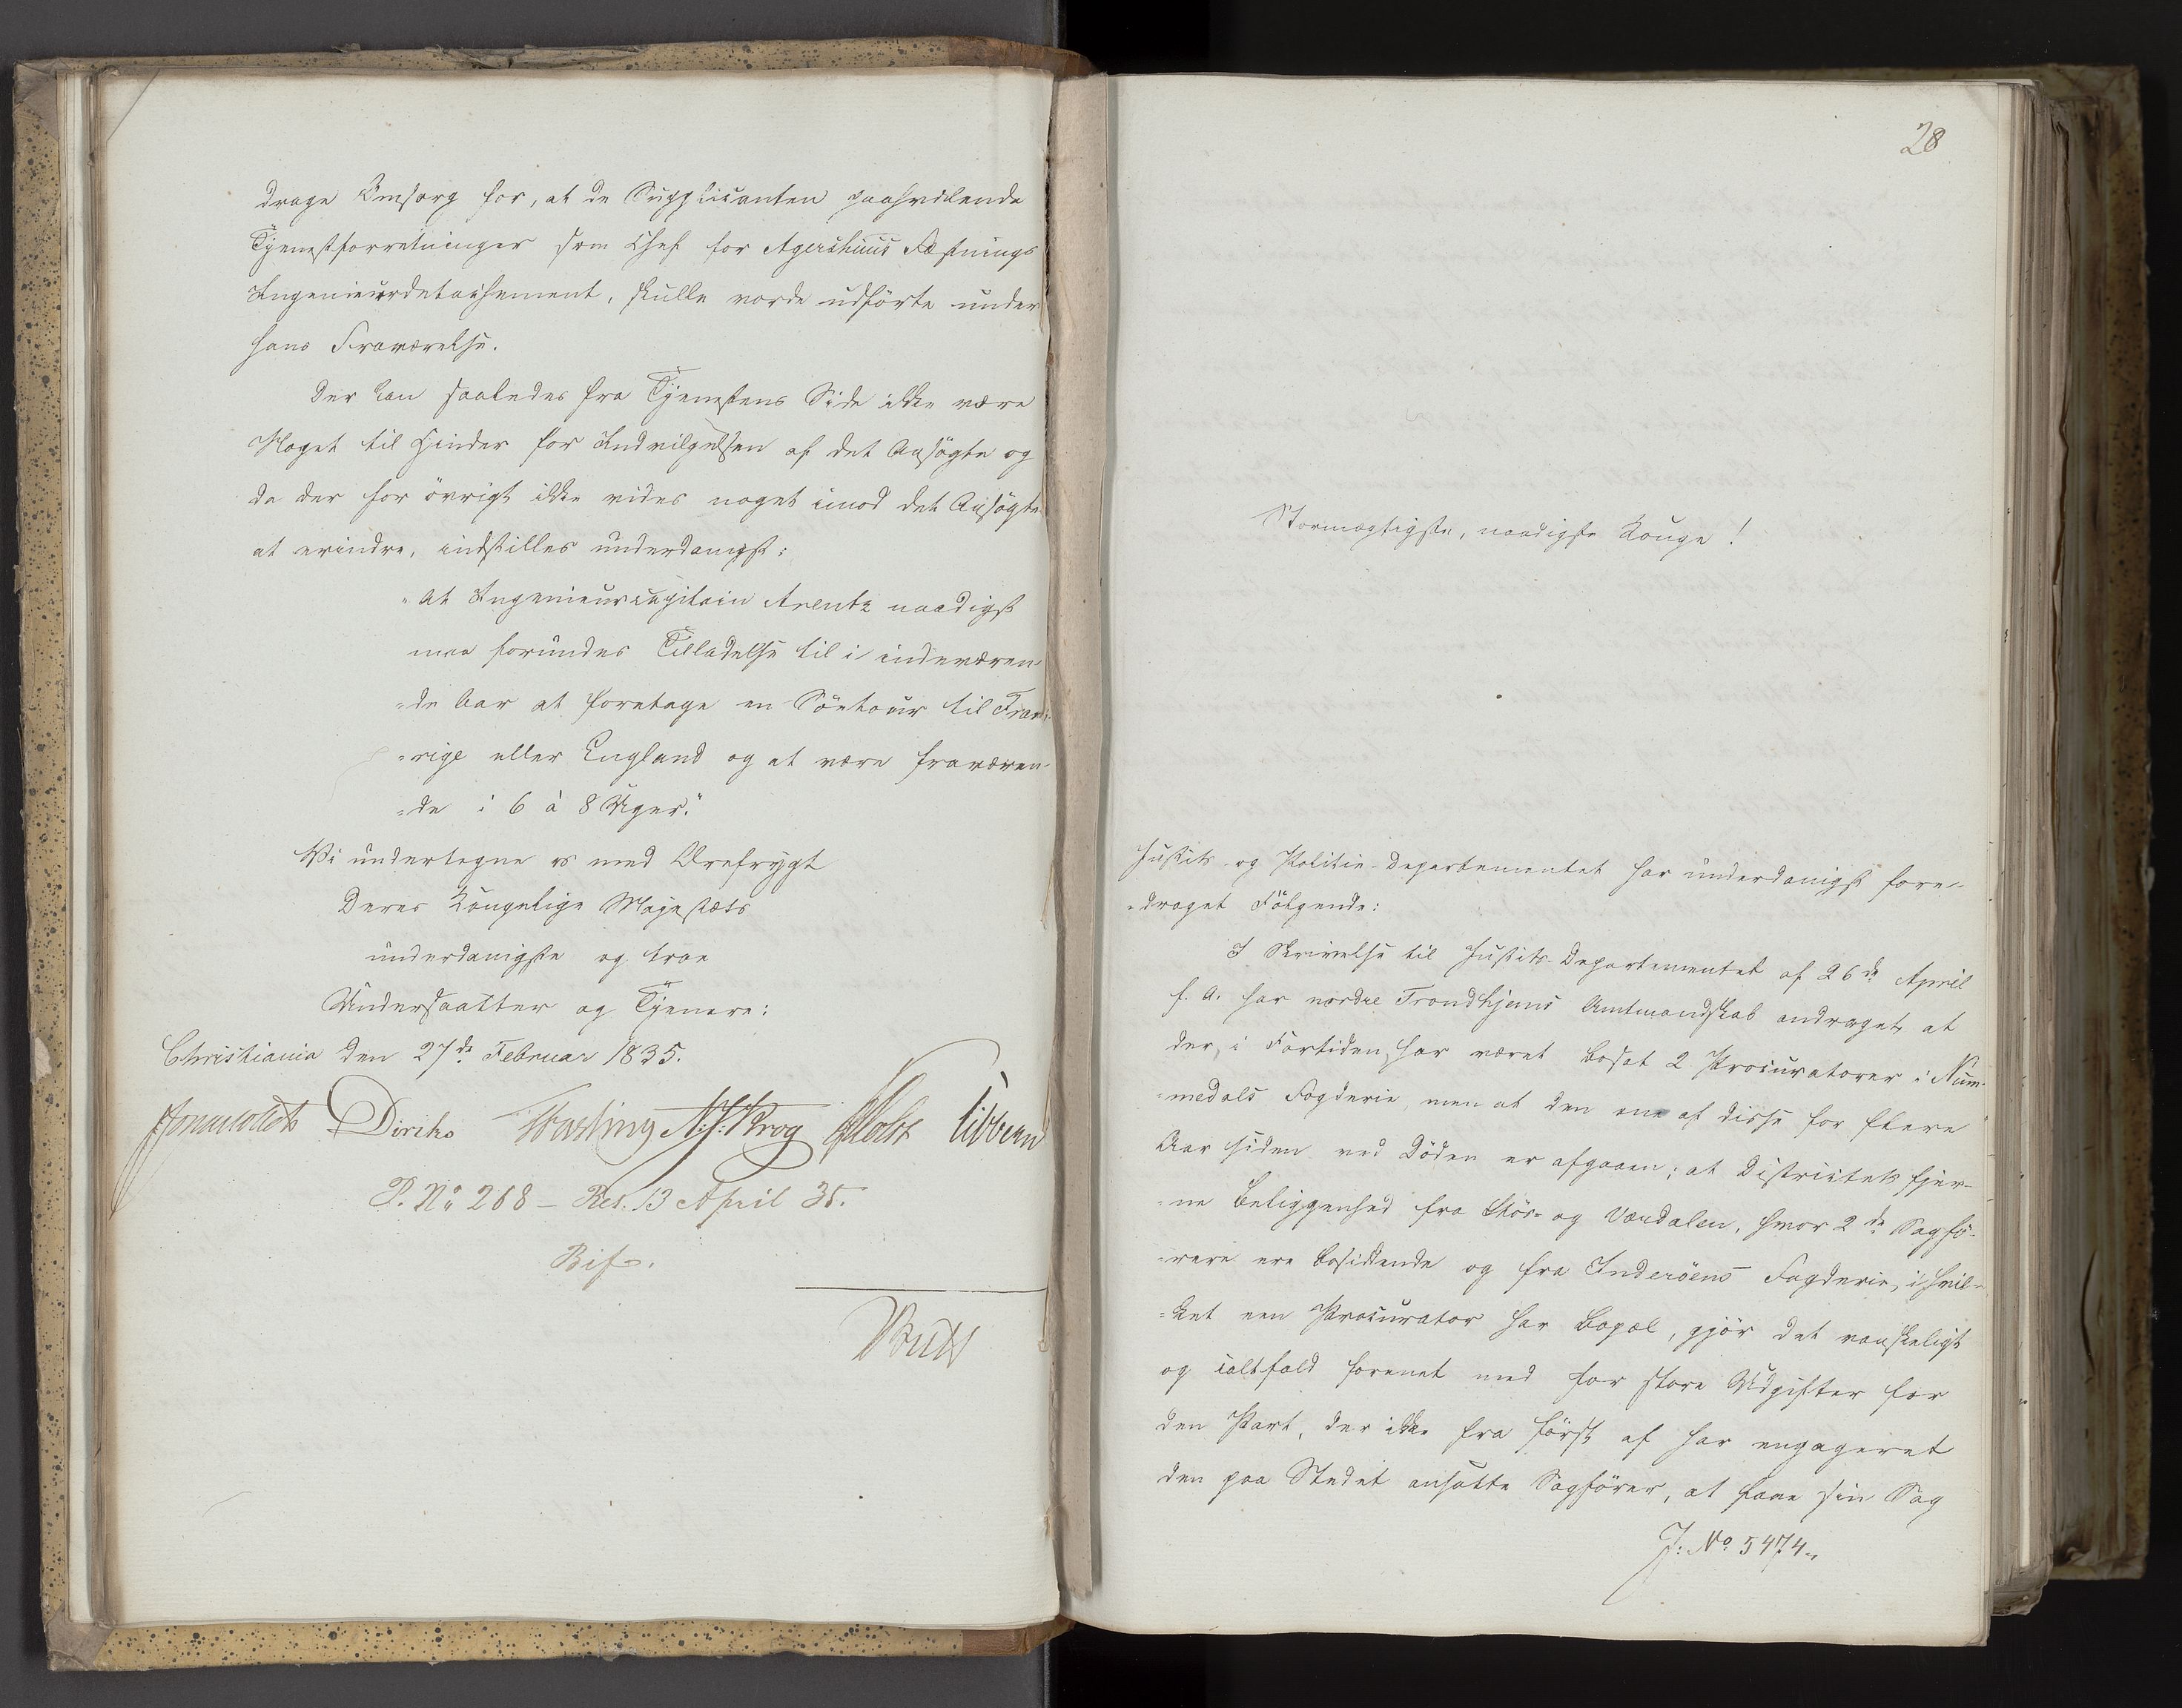 drage Omsorg for, at de Supplicanten paahvilende
Tjenestforretninger som Chef for Agershuus Fæstnings
Ingenieurdetachement, skulle vorde udförte under
hans Fraværelse.
Der kan saaledes fra Tjenestens Side ikke være
Noget til Hinder for Indvilgelsen af det Ansögte og
da der for övrigt ikke vides noget imod det Ansögte
at erindre, indstilles underdanigst:
"at Ingenieurcapitain Arentz naadigst
maa forundes Tilladelse til i indeværen-
=de Aar at foretage en Söetour til Frank-
=rige eller England og at være fraværen-
=de i 6 à 8 Uger."
Vi undertegne os med Ærefrygt
Deres Kongelige Majestæts
underdanigste og troe
Undersaatter og Tjenere:
Christiania den 27de Februar 1835.
Diriks Fasting Krog Holst Vibe
P. No 268 – Res. 13 April 35.
Bif.
28
Stormægtigste, naadigste Konge!
Justits- og Politie-Departementet har underdanigst fore-
=draget Fölgende:
I Skrivelse til Justits-Departementet af 26de April
f. A. har nordre Trondhjems Amtmandskab andraget, at
der, i Fortiden, har været bosat 2 Procuratorer i Num-
=medals Fogderie, men at den ene af disse for flere
Aar siden ved Döden er afgaaen; at Districtets fjer-
=ne Beliggenhed fra Stör- og Værdalen, hvor 2de Sagfö-
=rere ere bosiddende og fra Inderöens Fogderie, i hvil-
=ket een Procurator har Bopæl, gjör det vanskeligt
og ialtfald forenet med for store Udgifter for
den Part, der ikke fra först af har engageret
den paa Stedet ansatte Sagförer, at faae sin Sag
J: No 5474.